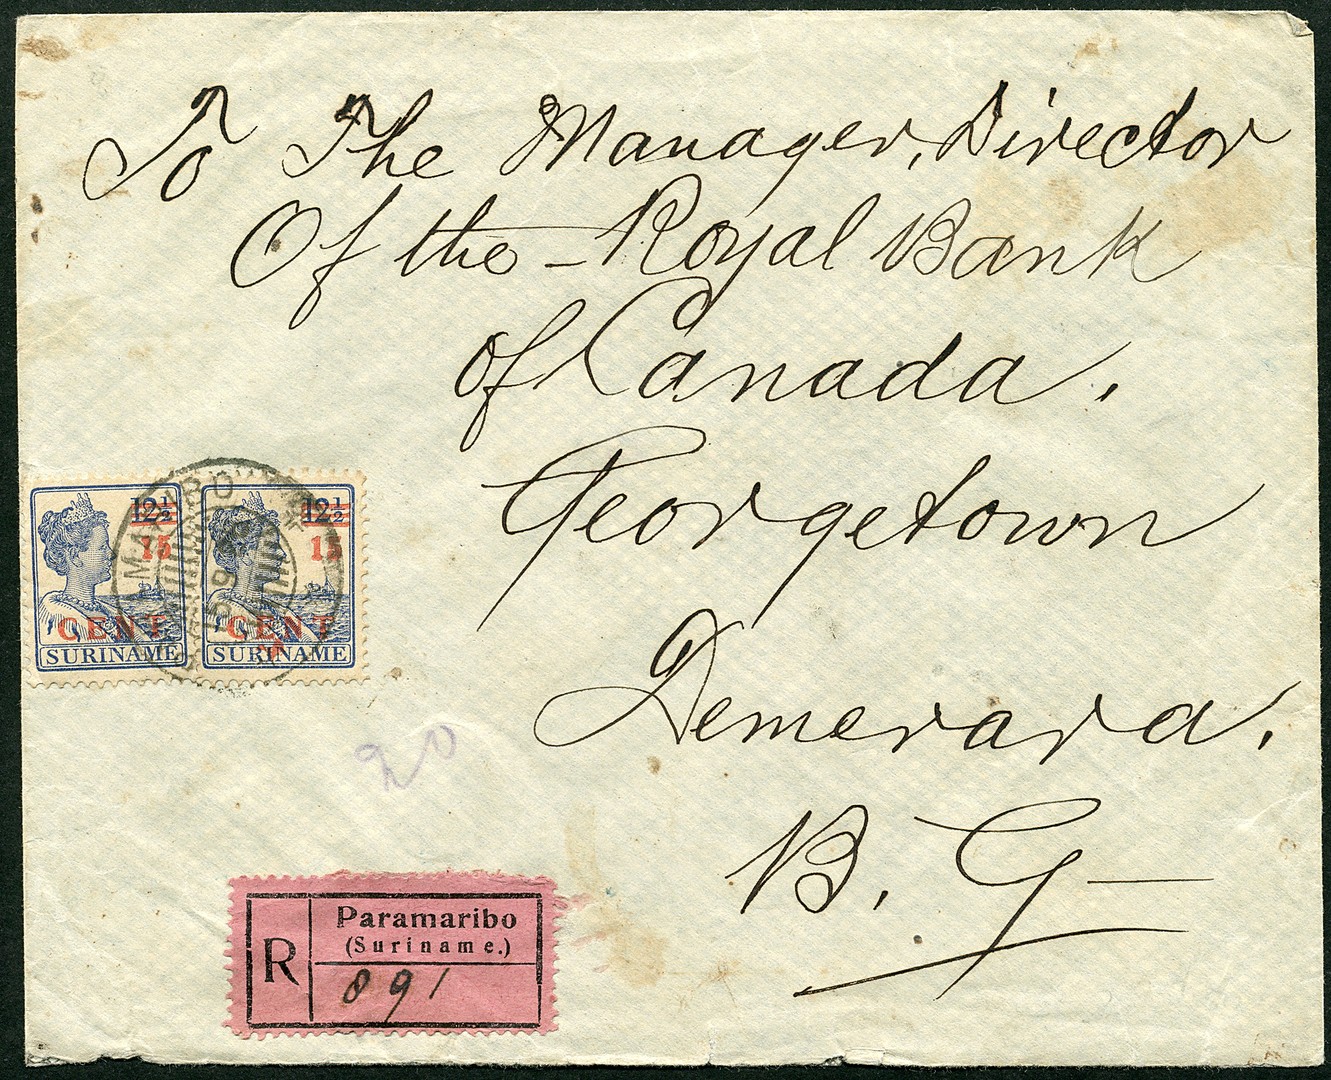 To The Manager, Director
Of the Royal Bank
of Canada.
Georgetown
Demerara.
B. G
12½ 12½
15 15
CENT CENT
SURINAME SURINAME
20
R
Paramaribo
(Suriname.)
891